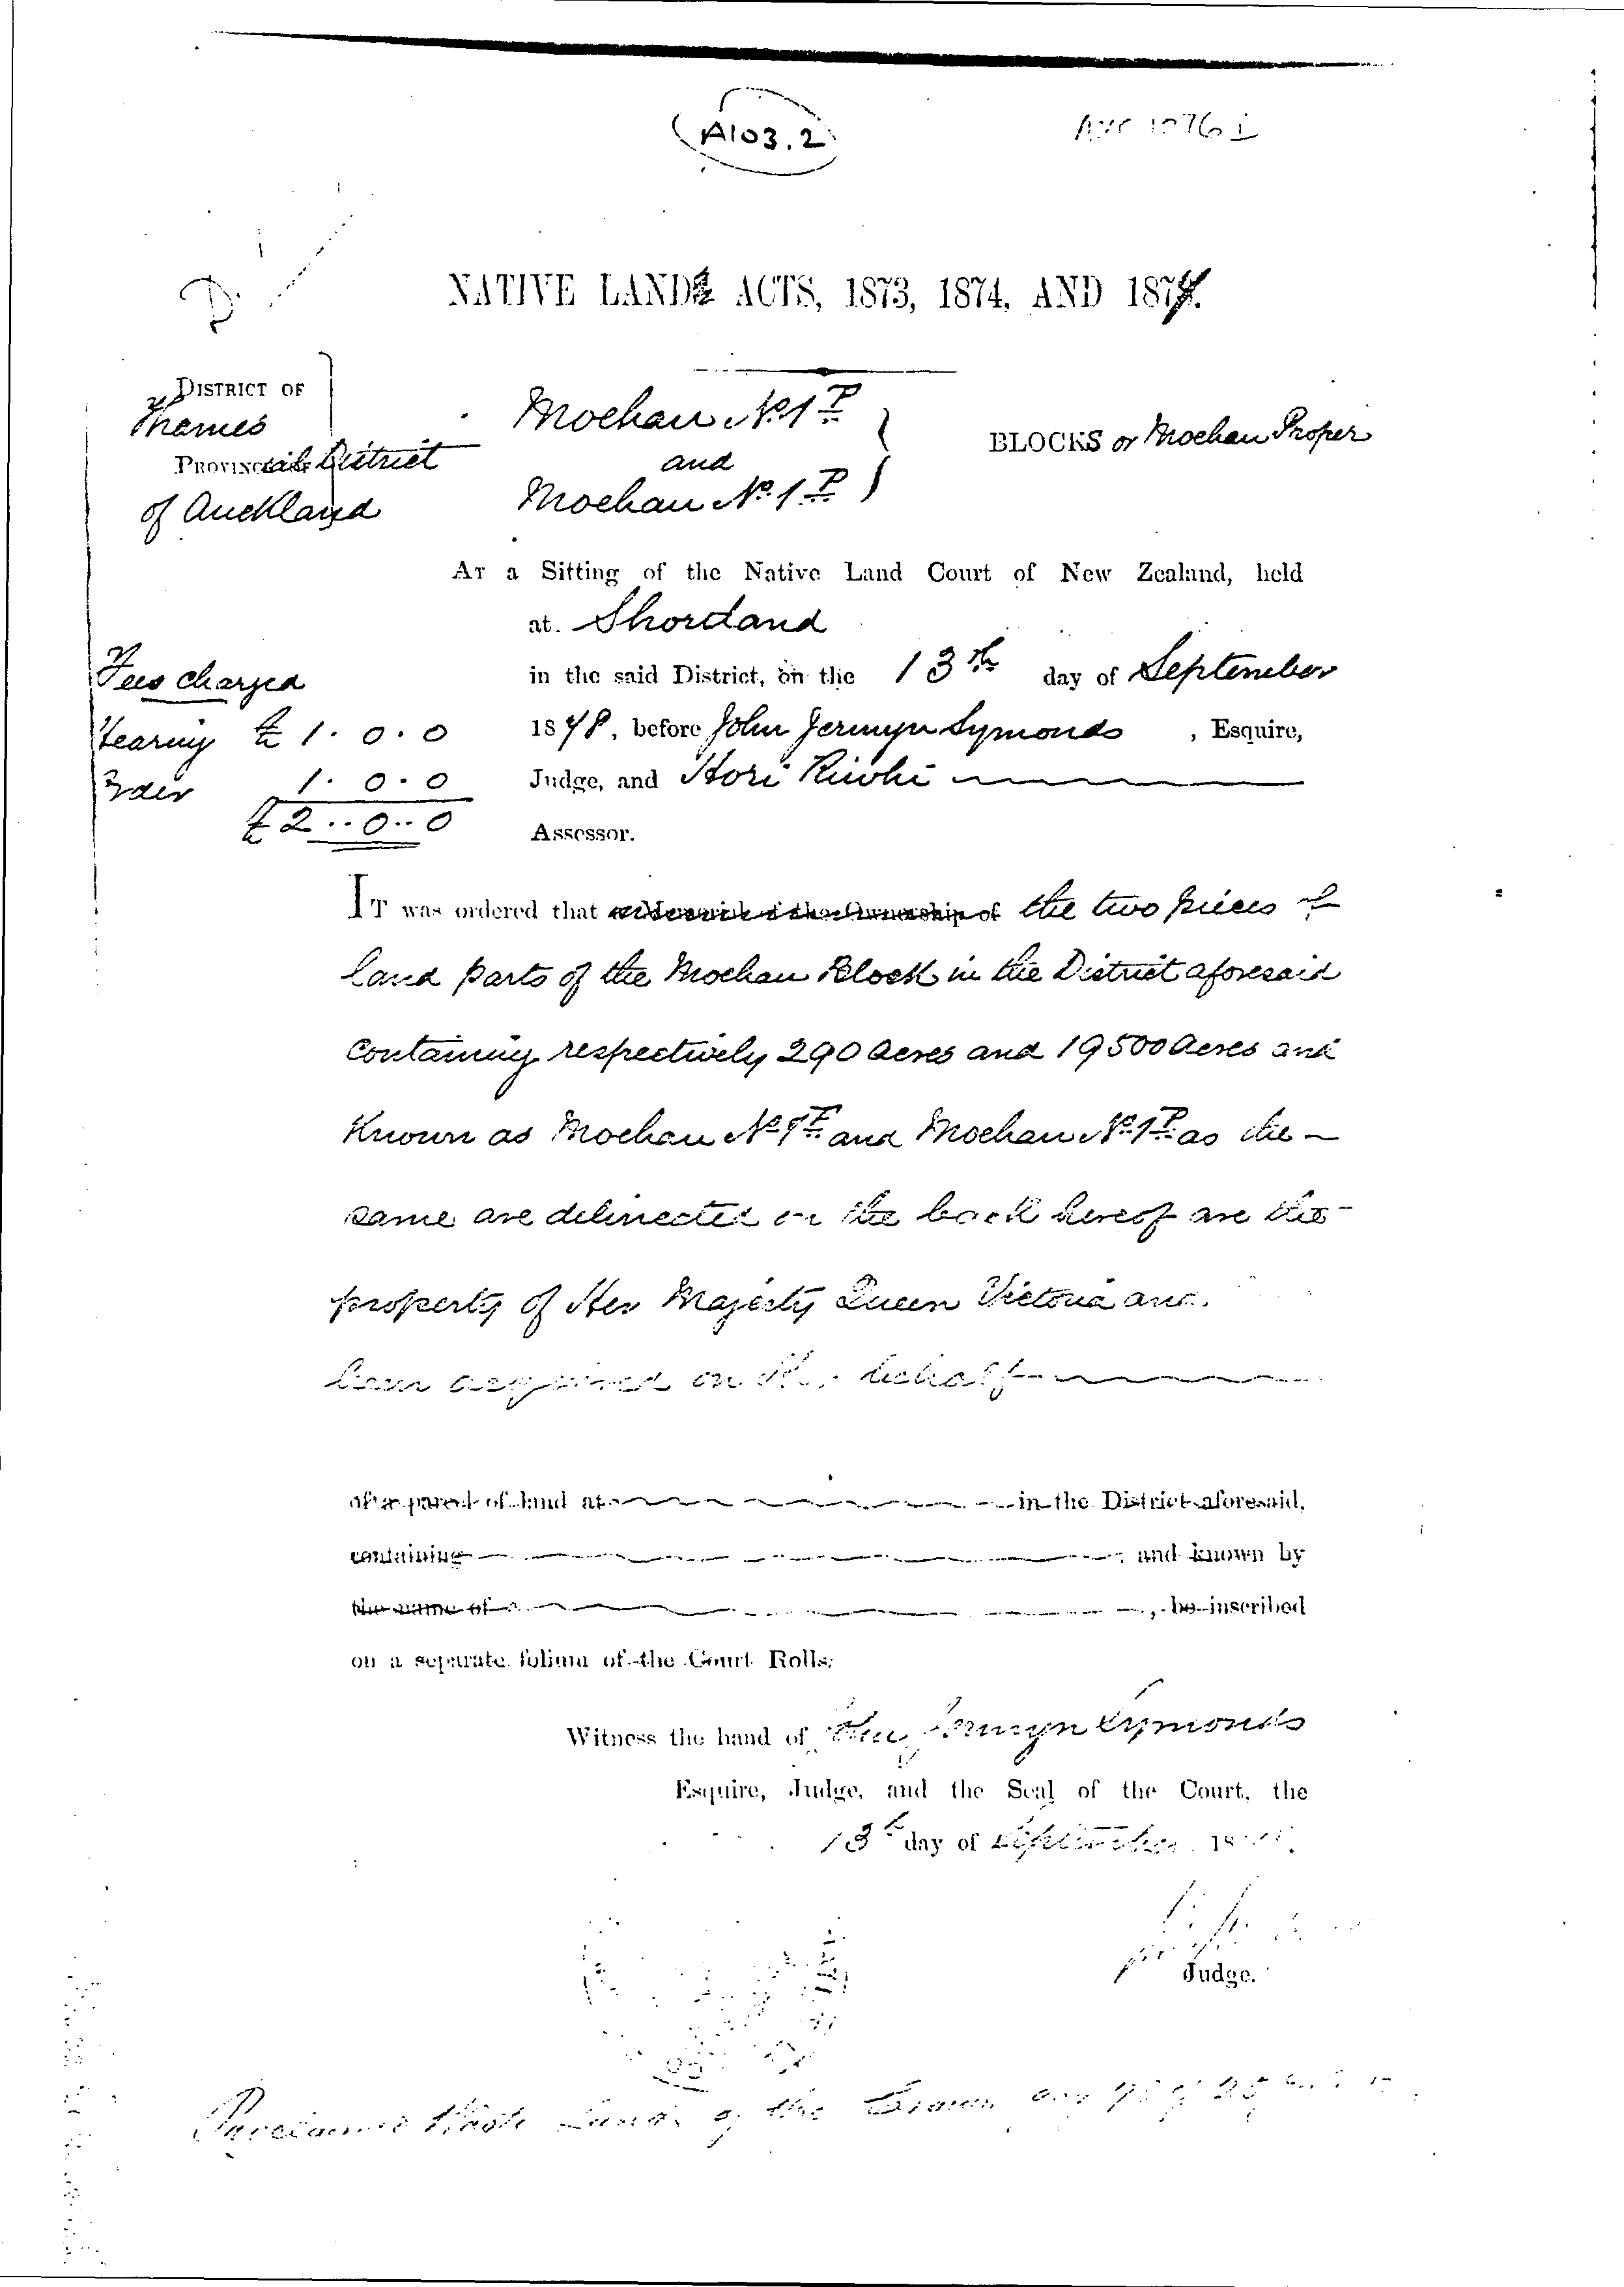 A103.2
NATIVE LAND ACTS, 1873, 1874, AND 187
DISTRICT OF
Thames
PROVINCIAL District
of Auckland
Moehau No. 1
and
Moehau No. 1
BLOCKS or Moehau Proper
AT a Sitting of the Native Land Court of New Zealand, held
at Shortland
in the said District, on the 13th day of September
1878, before John Jermyn Symonds, Esquire,
Judge, and Hori
Assessor.
Fees charged
Hearing £ 1. 0. 0
Order 1. 0. 0
£2..0..0
IT was ordered that the two pieces of
land parts of the Moehau Block in the District aforesaid
containing respectively 290 Acres and 19500 Acres and
Known as Moehau No. and Moehau No. 1 as the
same are delineated on the back hereof are the
property of Her Majesty Queen Victoria and
been acquired on behalf
of a parcel of land at in the District aforesaid,
containing , and known by
the name of , be inscribed
on a separate folium of the Court Rolls.
Witness the hand of John Jermyn Symonds
Esquire, Judge, and the Seal of the Court, the
13th day of September 18
Judge.
Waste Lands of the Crown